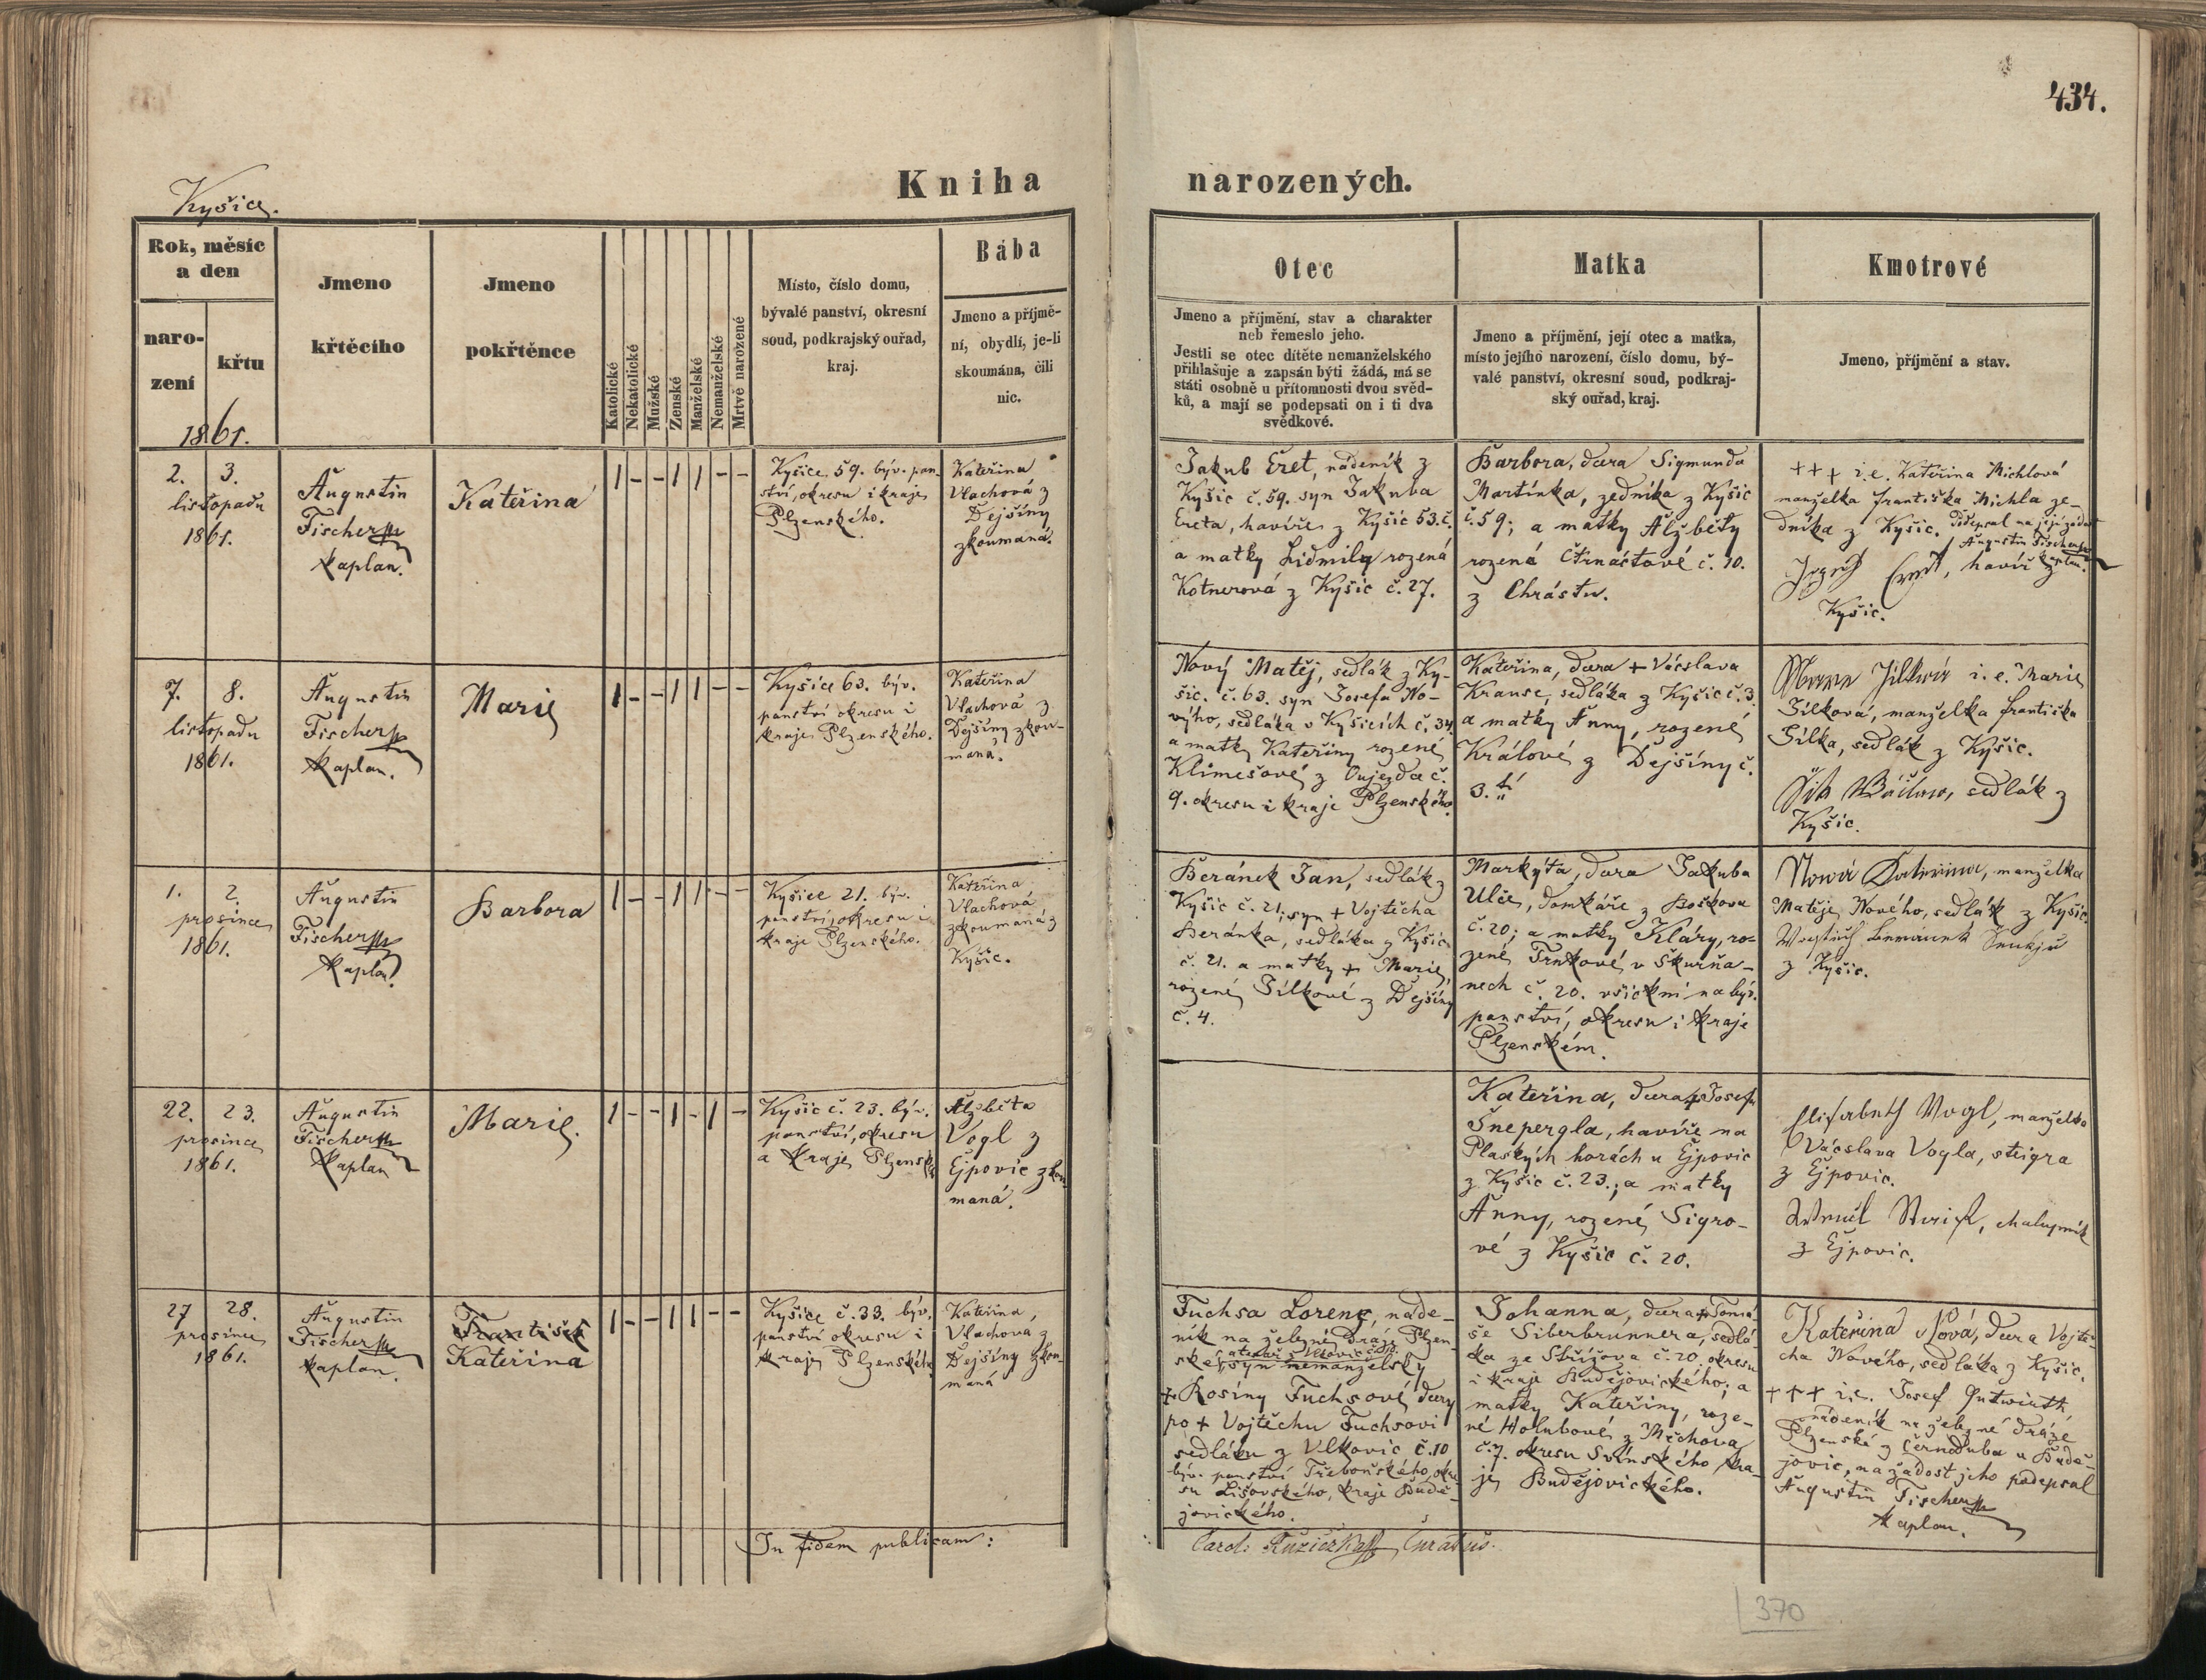 434.
Kniha narozených.
Kyšice.
Rok, měsíc
a den
naro-
zení
křtu
1861.
Jmeno
křtěcího
Jmeno
pokřtěnce
Katolické
Nekatolické
Mužské
Ženské
Manželské
Nemanželské
Mrtvě narozené
Místo, číslo domu,
bývalé panství, okresní
soud, podkrajský ouřad,
kraj.
Bába
Jmeno a příjmě-
ní, obydlí, je-li
skoumána, čili
nic.
Otec
Jmeno a příjmění, stav a charakter
neb řemeslo jeho.
Jestli se otec dítěte nemanželského
přihlašuje a zapsán býti žádá, má se
státi osobně u přítomnosti dvou svěd-
ků, a mají se podepsati on i ti dva
svědkové.
Matka
Jmeno a příjmění, její otec a matka,
místo jejího narození, číslo domu, bý-
valé panství, okresní soud, podkraj-
ský ouřad, kraj.
Kmotrové
Jmeno, příjmění a stav.
2. 3.
listopadu
1861.
Augustin
Fischer
kaplan.
Kateřina
1 - - 1 1 - -
Kyšice 59. býv. pan-
ství, okresu i kraje
Plzenského.
Kateřina
Vlachová z
Dejšiny
zkoumaná.
Jakub Eret, nádeník z
Kyšic č. 59. syn Jakuba
Ereta, havíře z Kyšic 53. č.
a matky Lidmily rozená
Kotnerová z Kyšic č. 27.
Barbora, dcera Sigmunda
Martínka, zedníka z Kyšic
č. 59; a matky Alžběty
rozená Čtrnáctové č. 10.
z Chrástu.
+++ i.e. Kateřina Michlová
manželka Františka Michla ze-
dníka z Kyšic. Podepsal na její žádost
Augustin Fischer
kaplan.
Eret, havíř z
Kyšic.
7. 8.
listopadu
1861.
Augustin
Fischer
kaplan.
Marie
1 - - 1 1 - -
Kyšice 63. býv.
panství okresu i
kraje Plzenského.
Kateřina
Vlachová z
Dejšiny zkou-
maná.
Nový Matěj, sedlák z Ky-
šic. č. 63. syn Josefa No-
výho, sedláka v Kyšicích č. 34.
a matky Kateřiny rozené
Klimešové z Oujezda č.
9. okresu i kraje Plzenského.
Kateřina, dcera + Václava
Krause, sedláka z Kyšic č. 3.
a matky Anny, rozené
Králové z Dejšiny č.
3.
i.e. Marie
Jílková, manželka Františka
Jílka, sedlák z Kyšic.
sedlák z
Kyšic.
1. 2.
prosince
1861.
Augustin
Fischer
kaplan
Barbora
1 - - 1 1 - -
Kyšice 21. býv.
panství, okresu i
kraje Plzenského.
Kateřina
Vlachová
zkoumaná z
Kyšic.
Beránek Jan, sedlák z
Kyšic č. 21; syn + Vojtěcha
Beránka, sedláka z Kyšic
č. 21. a matky + Marie,
rozené Jílkové z Dejšiny
č. 4.
Markýta, dcera Jakuba
Ulče, domkáře z Boškova
č. 20; a matky Kláry, ro-
zené Trnkové v Skurňa-
nech č. 20. všickni na býv.
panství, okresu i kraje
Plzenském.
Nová Kateřina, manželka
Matěje Nového, sedlák z Kyšic.
z Kyšic.
22. 23.
prosince
1861.
Augustin
Fischer
kaplan
Marie.
1 - - 1 - 1 -
Kyšic č. 23. býv.
panství, okresu
a kraje Plzensk.
Alžběta
Vogl z
Ejpovic zkou-
maná.
Kateřina, dcera + Josefa
Šnepergla, havíře na
Plaských horách u Ejpovic
z Kyšic č. 23.; a matky
Anny, rozené Sigro-
vé z Kyšic č. 20.
Elisabeth Vogl, manželka
Václava Vogla, steigra
z Ejpovic.
chalupník
z Ejpovic.
27 28.
prosince
1861.
Augustin
Fischer
kaplan.
František
Kateřina
1 - - 1 1 - -
Kyšice č. 33. býv.
panství okresu i
kraje Plzenského
Kateřina,
Vlachová z
Dejšiny zkou-
maná
Fuchsa Lorenz, náde-
ník na železné dráze Plzen-
ské, syn nemanželský
+ Rosiny Fuchsové, dcery
po + Vojtěchu Fuchsovi
sedláku z Vlkovic č. 10
býv. panství Třeboňského, okre-
su Lišovského, kraje Budě-
jovického.
Johanna, dcera + Tomá-
še Siberbrunnera, sedlá-
ka ze Střížova č. 20. okresu
i kraje Budějovického; a
matky Kateřiny, roze-
né Holubové z Měchova
č. 7. okresu Svinského kra-
je Budějovického.
Kateřina Nová, dcera Vojtě-
cha Nového, sedláka z Kyšic.
+++ i.e. Josef Gutwirth,
nádeník na železné dráze
Plzenské z Černoduba u Budě-
jovic, na žádost jeho podepsal
Augustin Fischer
kaplan.
In fidem publicam:
Carol. Růžička, Curatus.
370